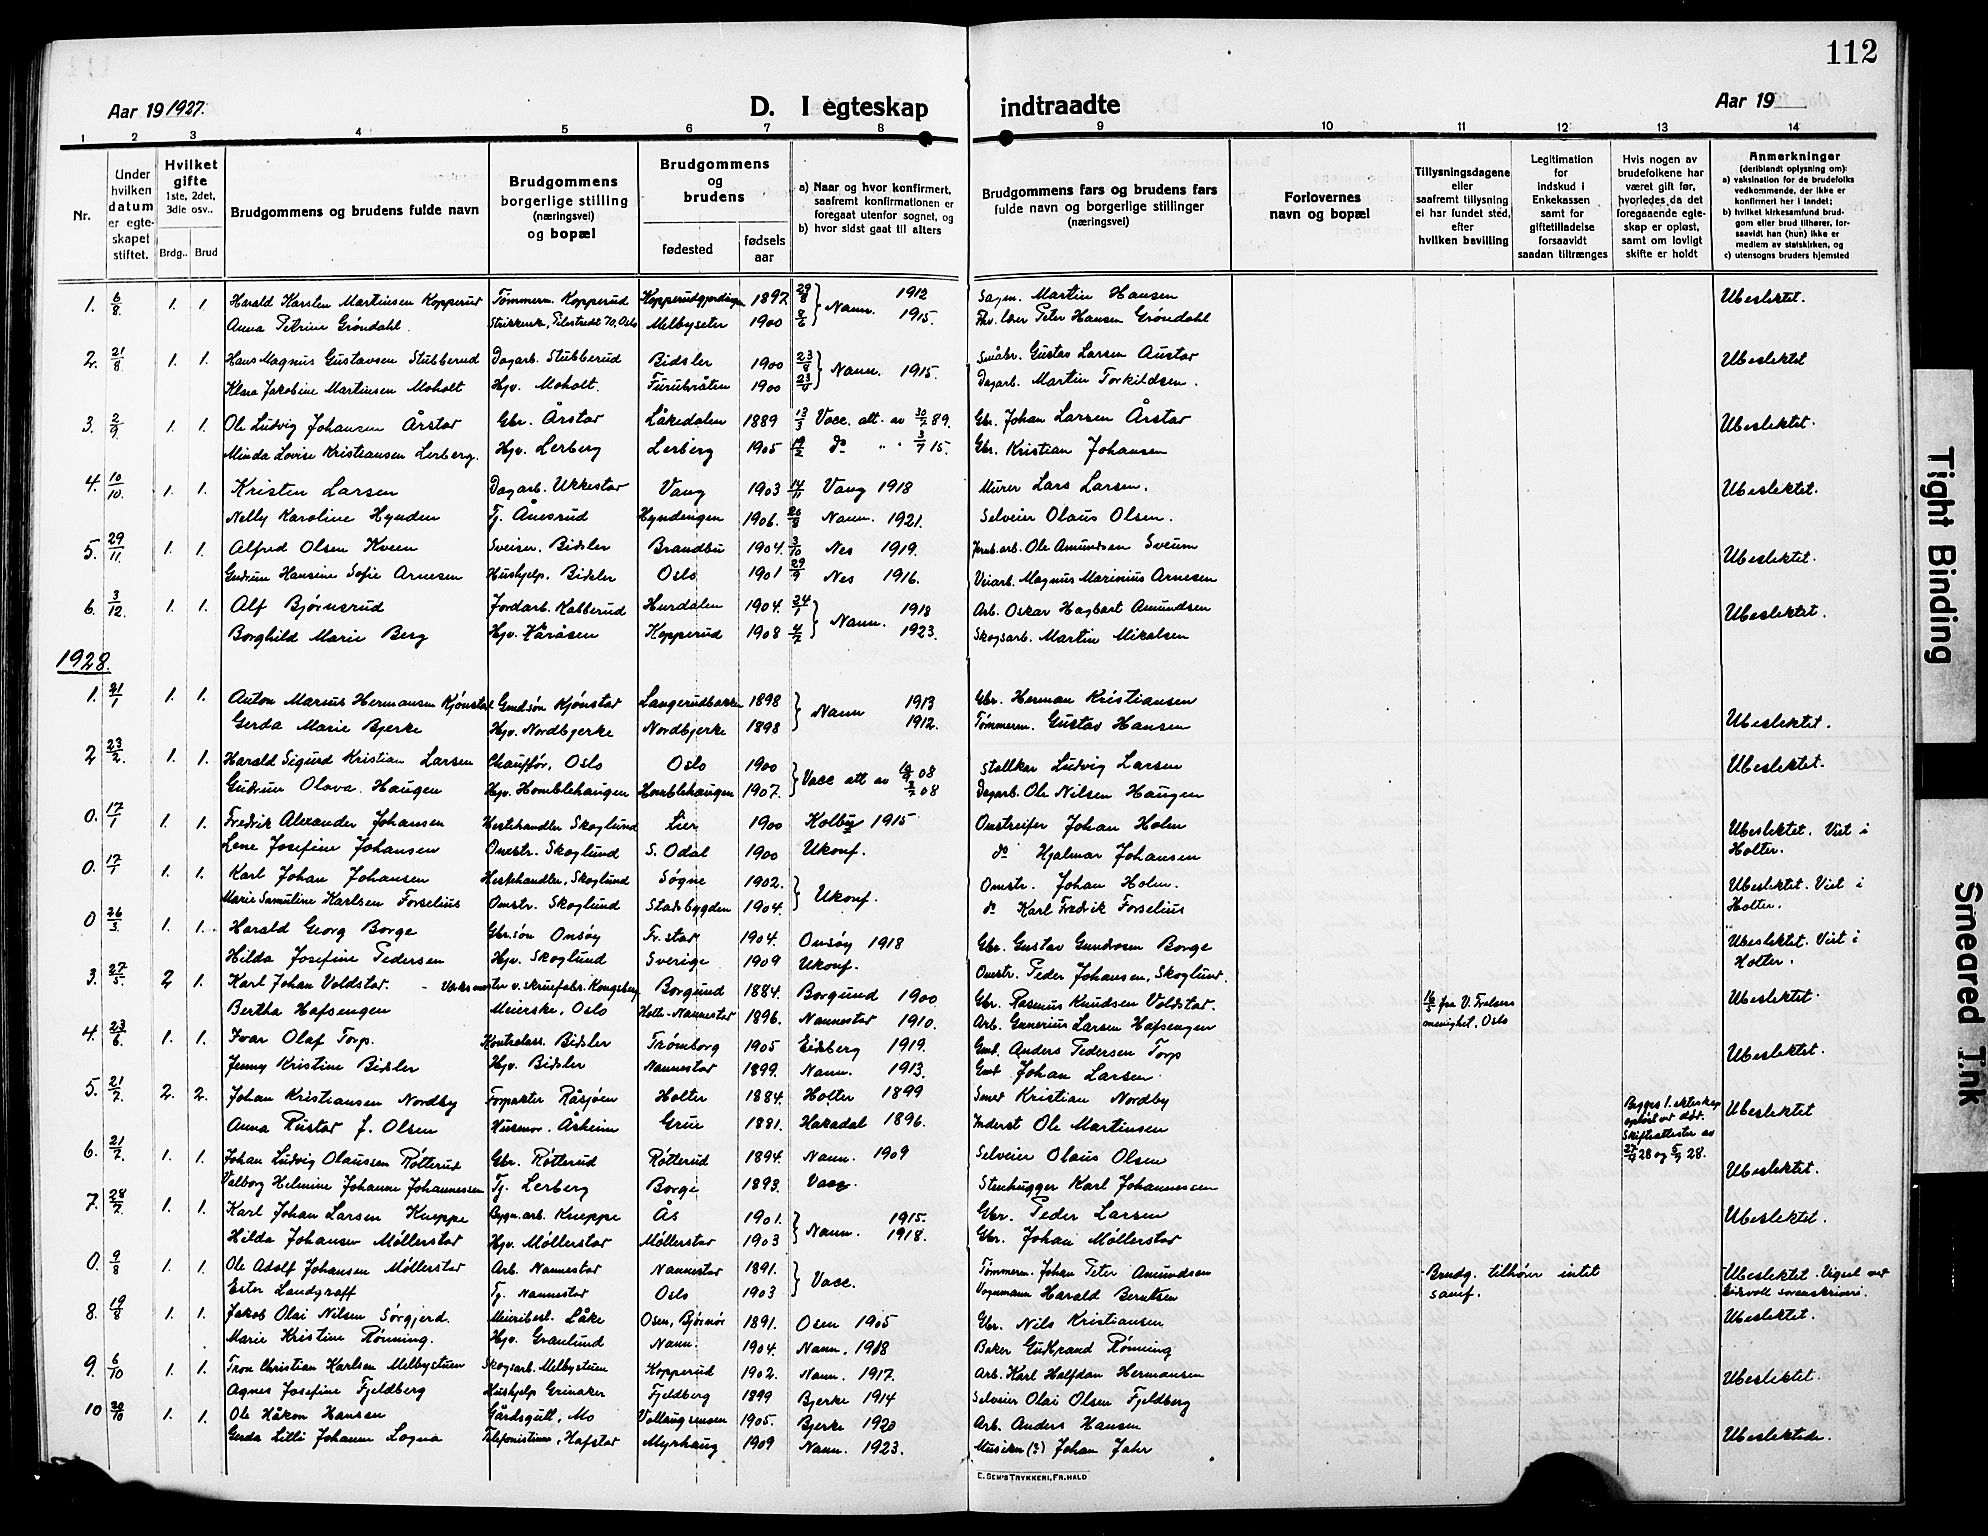 112
Aar 19 1927. D. I egteskap indtraadte Aar 19
1 2 3 4 5 6 7 8 9 10 11 12 13 14
Nr.
Under hvilken datum er egteskapet stiftet.
Hvilket gifte 1ste, 2det, 3die osv..
Brdg.. Brud
Brudgommens og brudens fulde navn
Brudgommens borgerlige stilling (næringsvei) og bopæl
Brudgommens og brudens
fødested
fødsels aar
a) Naar og hvor konfirmert, saafremt konfirmationen er foregaat utenfor sognet, og
b) hvor sidst gaat til alters
Brudgommens fars og brudens fars fulde navn og borgerlige stillinger (næringsvei)
Forlovernes navn og bopæl
Tillysningsdagene eller saafremt tillysning ei har fundet sted, efter hvilken bevilling
Legitimation for indskud i Enkekassen samt for giftetilladelse forsaavidt saadan tiltrænges
Hvis nogen av brudefolkene har været gift før, hvorledes da det foregaaende egteskap er opløst, samt om lovligt skifte er holdt
Anmerkninger (deriblandt oplysning om):
a) vaksination for de brudefolks vedkommende, der ikke er konfirmert her i landet;
b) hvilket kirkesamfund brudgom eller brud tilhører, forsaavidt han (hun) ikke er medlem av statskirken, og
c) utensogns bruders hjemsted
1. 6/8 1. 1. Harald Karsten Martinsen Kopperud Tømmerm. Kopperud Kopperudgjerdingen 1897 29/8 Nann. 1912 Sagm. Martin Hansen Ubeslektet.
Anna Petrine Grøndahl. Strikkersk., Pilestredt 70, Oslo Melbyseter 1900 8/6 1915. Fhv. lærer Peter Hansen Grøndahl
2. 21/8 1. 1. Hans Magnus Gustavsen Stubberud Dagarb. Stubberud Bidsler 1900 23/8 Nann. 1915. Småbr. Gustav Larsen Austad Ubeslektet
Klara Jakobine Martinsen Moholt Hjv. Moholt. Furubråten 1900 23/4 Dagarb. Martin Torkildsen.
3. 2/9 1. 1. Ole Ludvig Johansen Årstad Gbr. Årstad Låkedalen 1889 13/3 Vacc. att. av 30/7 89. Gbr. Johan Larsen Årstad Ubeslektet.
Minda Lovise Kristiansen Lerberg. Hjv. Lerberg Lerberg 1905 19/2 do " " 3/7 15. Gbr. Kristian Johansen
4. 10/10. 1. 1. Kristen Larsen Dagarb. Ukkestad Vang 1903 14/11 Vang 1918 Murer Lars Larsen. Ubeslektet.
Nelly Karoline Hynden Tj. Ånesrud Hyndeugen 1906. 26/8 Nann. 1921. Selveier Olaus Olsen.
5. 29/11. 1. 1. Alfred Olsen Kveen Sveiser, Bidsler Brandbu 1904. 3/10 Nes 1919. Jernb.arb. Ole Amundsen Sveum Ubeslektet.
Gudrun Hansine Sofie Arnesen Hushjelp. Bidsler Oslo 1901 29/9 Nes 1916. Veiarb. Magnus Marinius Arnesen
6. 3/12. 1. 1. Alf Bjørnsrud Jordarb. Kabberud Hurdalen 1904. 24/1 Nann. 1918 Arb. Oskar Hagbart Amundsen Ubeslektet.
Borghild Marie Berg Hjv. Håråsen Kopperud 1908 4/2 1923. Skogsarb. Martin Mikalsen
1928.
1. 21/1 1. 1. Anton Marius Hermansen Kjønstad Gmdsøn Kjønstad Langerudbakken 1898 Nann 1913 Gbr. Herman Kristiansen
Gerda Marie Bjerke Hjv. Nordbjerke Nordbjerke 1898 1912. Tømmerm. Gustav Hansen Ubeslektet.
2 23/2. 1. 1. Harald Sigurd Kristian Larsen Chauffør, Oslo Oslo 1900 Vacc att av 08 Stallkar Ludvig Larsen Ubeslektet.
Gudrun Olava Haugen Hjv. Homblehaugen Homblehaugen 1907. 08 Dagarb. Ole Nilsen Haugen
0. 17/1 1. 1. Fredrik Alexander Johansen Hestehandler Skoglund Lier 1900 Kolbu 1915 Omstreifer Johan Holm Ubeslektet. Viet i
Lene Josefine Johansen Omstr. Skoglund S. Odal 1900 Ukonf. do Hjalmar Johansen Holter.
0. 17/1 1. 1. Karl Johan Johansen Hestehandler, Skoglund Søgne 1902. Ukonf. Omstr. Johan Holm. Ubeslektet. Viet i
Marie Samuline Karlsen Forselius Omstr. Skoglund Stadsbygden 1904. do Karl Fredrik Forselius Holter.
0 26/3 1. 1. Harald Georg Borge Gbr.søn Onsøy Fr.stad 1904. Onsøy 1918 Gbr. Gustav Gundvsen Borge Ubeslektet. Viet i
Hilda Josefine Pedersen Hjv. Skoglund Sverige 1909 Ukonf. Omstr. Peder Johansen, Skoglund. Holter.
3. 27/5. 2 1. Karl Johan Voldstad. - Verksmester v. skruefabr. Kongsberg Borgund 1884. Borgund 1900 Gbr. Rasmus Knudsen Voldstad. 16/5 fra V. Frelsers Ubeslektet.
Bertha Hafsengen Meierske, Oslo Holte-Nannestad 1896. Nannestad 1910. Arb. Gunerius Larsen Hafsengen menighet, Oslo
4. 23/6 1. 1. Ivar Olaf Torp. Kontrolass. Bidsler Trømborg 1905 Eidsberg 1919. Gmd. Anders Pedersen Torp Ubeslektet.
Jenny Kristine Bidsler Hjv. Bidsler Nannestad 1899. Nann. 1913. Gmd Johan Larsen.
5. 21/7. 2. 2. Johan Kristiansen Nordby Forpakter Råsjøen Holter 1884. Holter 1899 Smed Kristian Nordby Begges 1. ekteskap Ubeslektet
Anna Rustad f. Olsen Husmor. Åsheim Grue 1881. Hakadal 1896. Inderst Ole Martinsen opløst ved død. Skifteattester av 28 og 28.
6. 21/7. 1. 1. Johan Ludvig Olaussen Røtterud Gbr. Røtterud Røtterud 1894. Nann. 1909 Selveier Olaus Olsen Ubeslektet.
Valborg Helmine Johanne Johannessen Tj. Lerberg Borge 1893. Vacc. Stenhugger Karl Johannessen
7. 28/7. 1. 1. Karl Johan Larsen Kneppe Bygn.arb. Kneppe Ås 1901. Nann. 1915. Gbr. Peder Larsen Ubeslektet.
Hilda Johansen Møllerstad Hjv. Møllerstad Møllerstad 1903 1918. Gbr. Johan Møllerstad
0. 9/8 1. 1. Ole Adolf Johansen Møllerstad Arb. Nannestad Nannestad 1891. Vacc. Tømmerm. Johan Peter Amundsen Brudg. tilhører intet Ubeslektet. Vigsel ved
Ester Landgraff Tj. Nannestad Oslo 1903 Vognmann Harald Berntsen samf. Eidsvoll sorenskriveri.
8. 19/8 1. 1. Jakob Olai Nilsen Sørgjerd. Meieribest. Låke Osen, Bjørnør 1891. Osen 1905 Gbr. Nils Kristiansen Ubeslektet.
Marie Kristine Rønning. Hjv. Granlund Nann. 1904. Nann. 1918 Baker Gudbrand Rønning
9. 6/10 1. 1. Tron Christian Karlsen Melbystuen Skogsarb. Melbystuen Kopperud 1902. Nann. 1917. Arb. Karl Halfdan Hermansen Ubeslektet.
Agnes Josefine Fjeldberg Hushjelp Grinaker Fjeldberg 1899 Bjerke 1914 Selveier Olai Olsen Fjeldberg
10 20/10 1. 1. Ole Håkon Hansen Gårdsgutt, Mo Vollaugsmoen 1905. Bjerke 1920 Arb. Anders Hansen
Gerda Lilli Johanne Logna Telefonistinne, Hafstad Myrhaug 1909 Nann. 1923. Musiker (?) Johan Jahr Ubeslektede.
E. SEM'S TRYKKERI, FR.HALD
Tight Binding
Smeared Ink